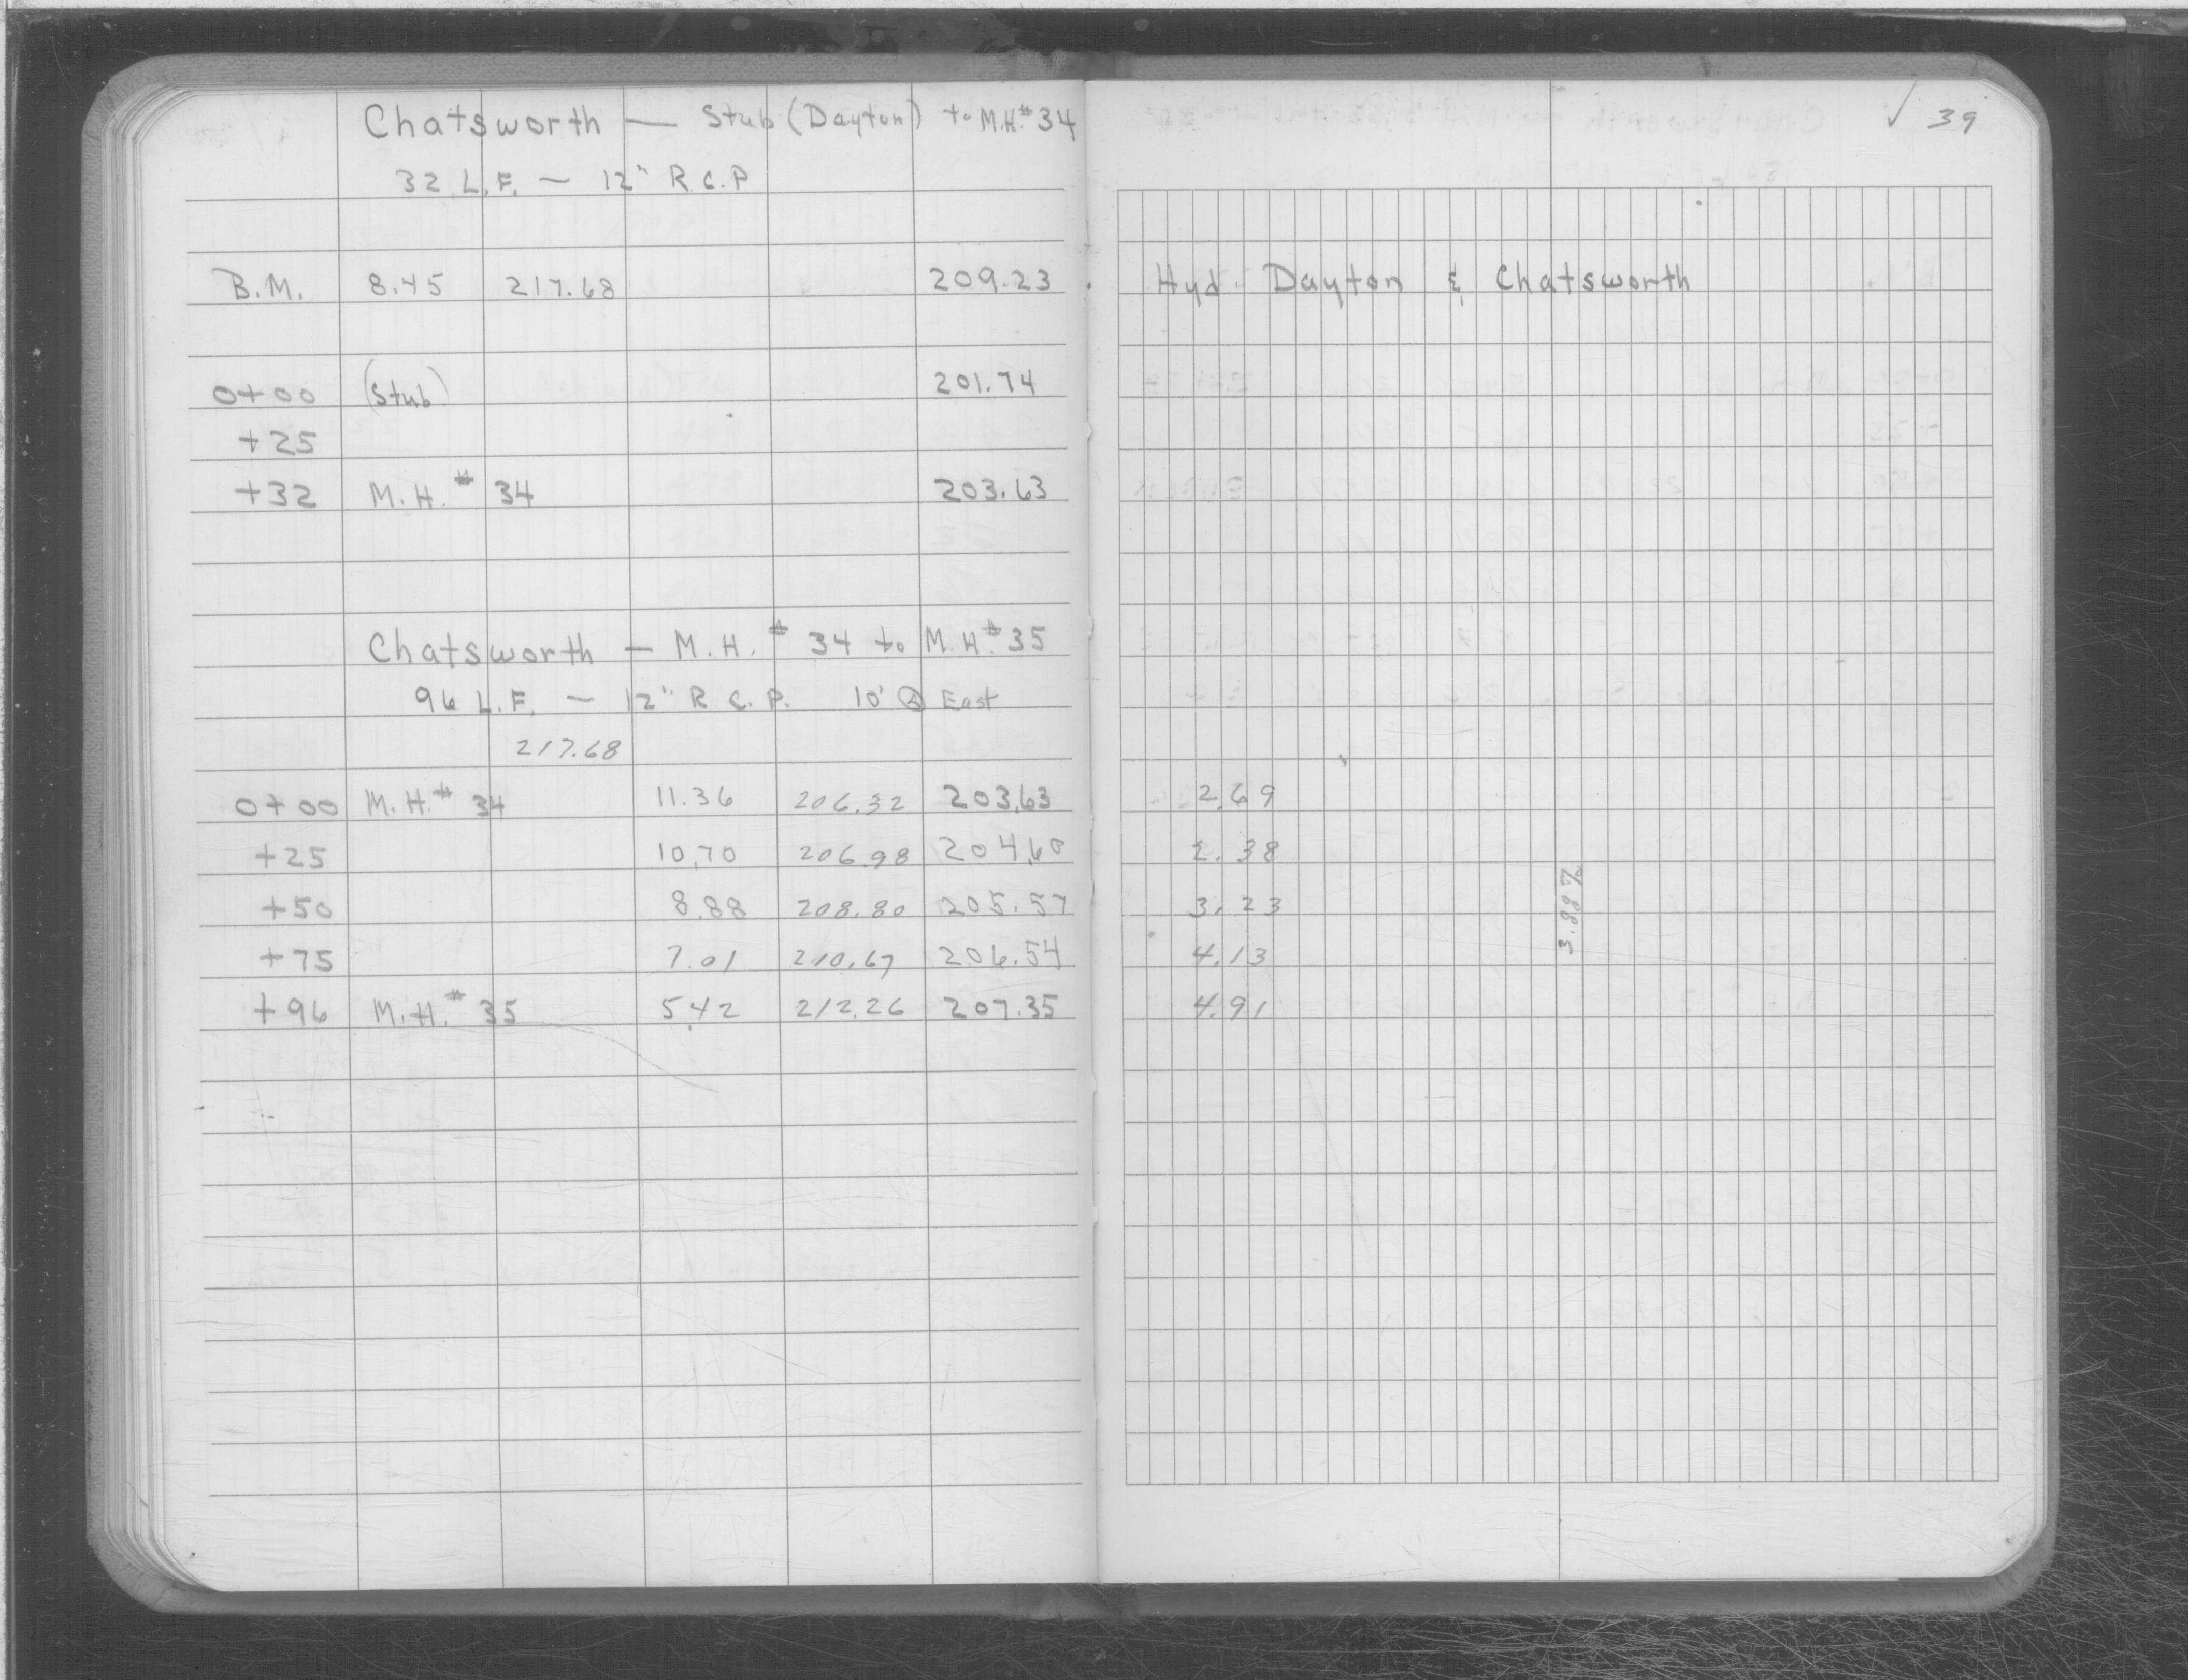 Chatsworth — Stub (Dayton) to M.H.# 34
✓ 39
32 L.F. — 12" R.C.P
B.M. 8.45 217.68 209.23 Hyd. Dayton & Chatsworth
0+00 (Stub) 201.74
+25
+32 M.H.# 34 203.63
Chatsworth — M.H.# 34 to M.H.# 35
96 L.F. — 12" R.C.P. 10' East
217.68
0+00 M.H.# 34 11.36 206.32 203.63 2.69
+25 10.70 206.98 204.60 2.38
+50 8.88 208.80 205.57 3.23
+75 7.01 210.67 206.54 4.13
3.88%
+96 M.H.# 35 5.42 212.26 207.35 4.91